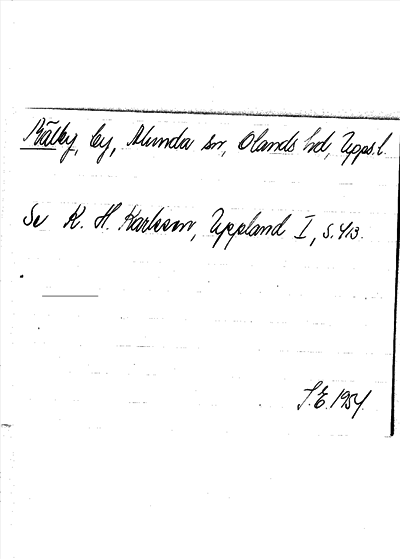 Rålby, by, Alunda sn, Olands hd, Upps. l.
Se K. H. Karlsson, Uppland I, s. 413.
S.E. 1954.